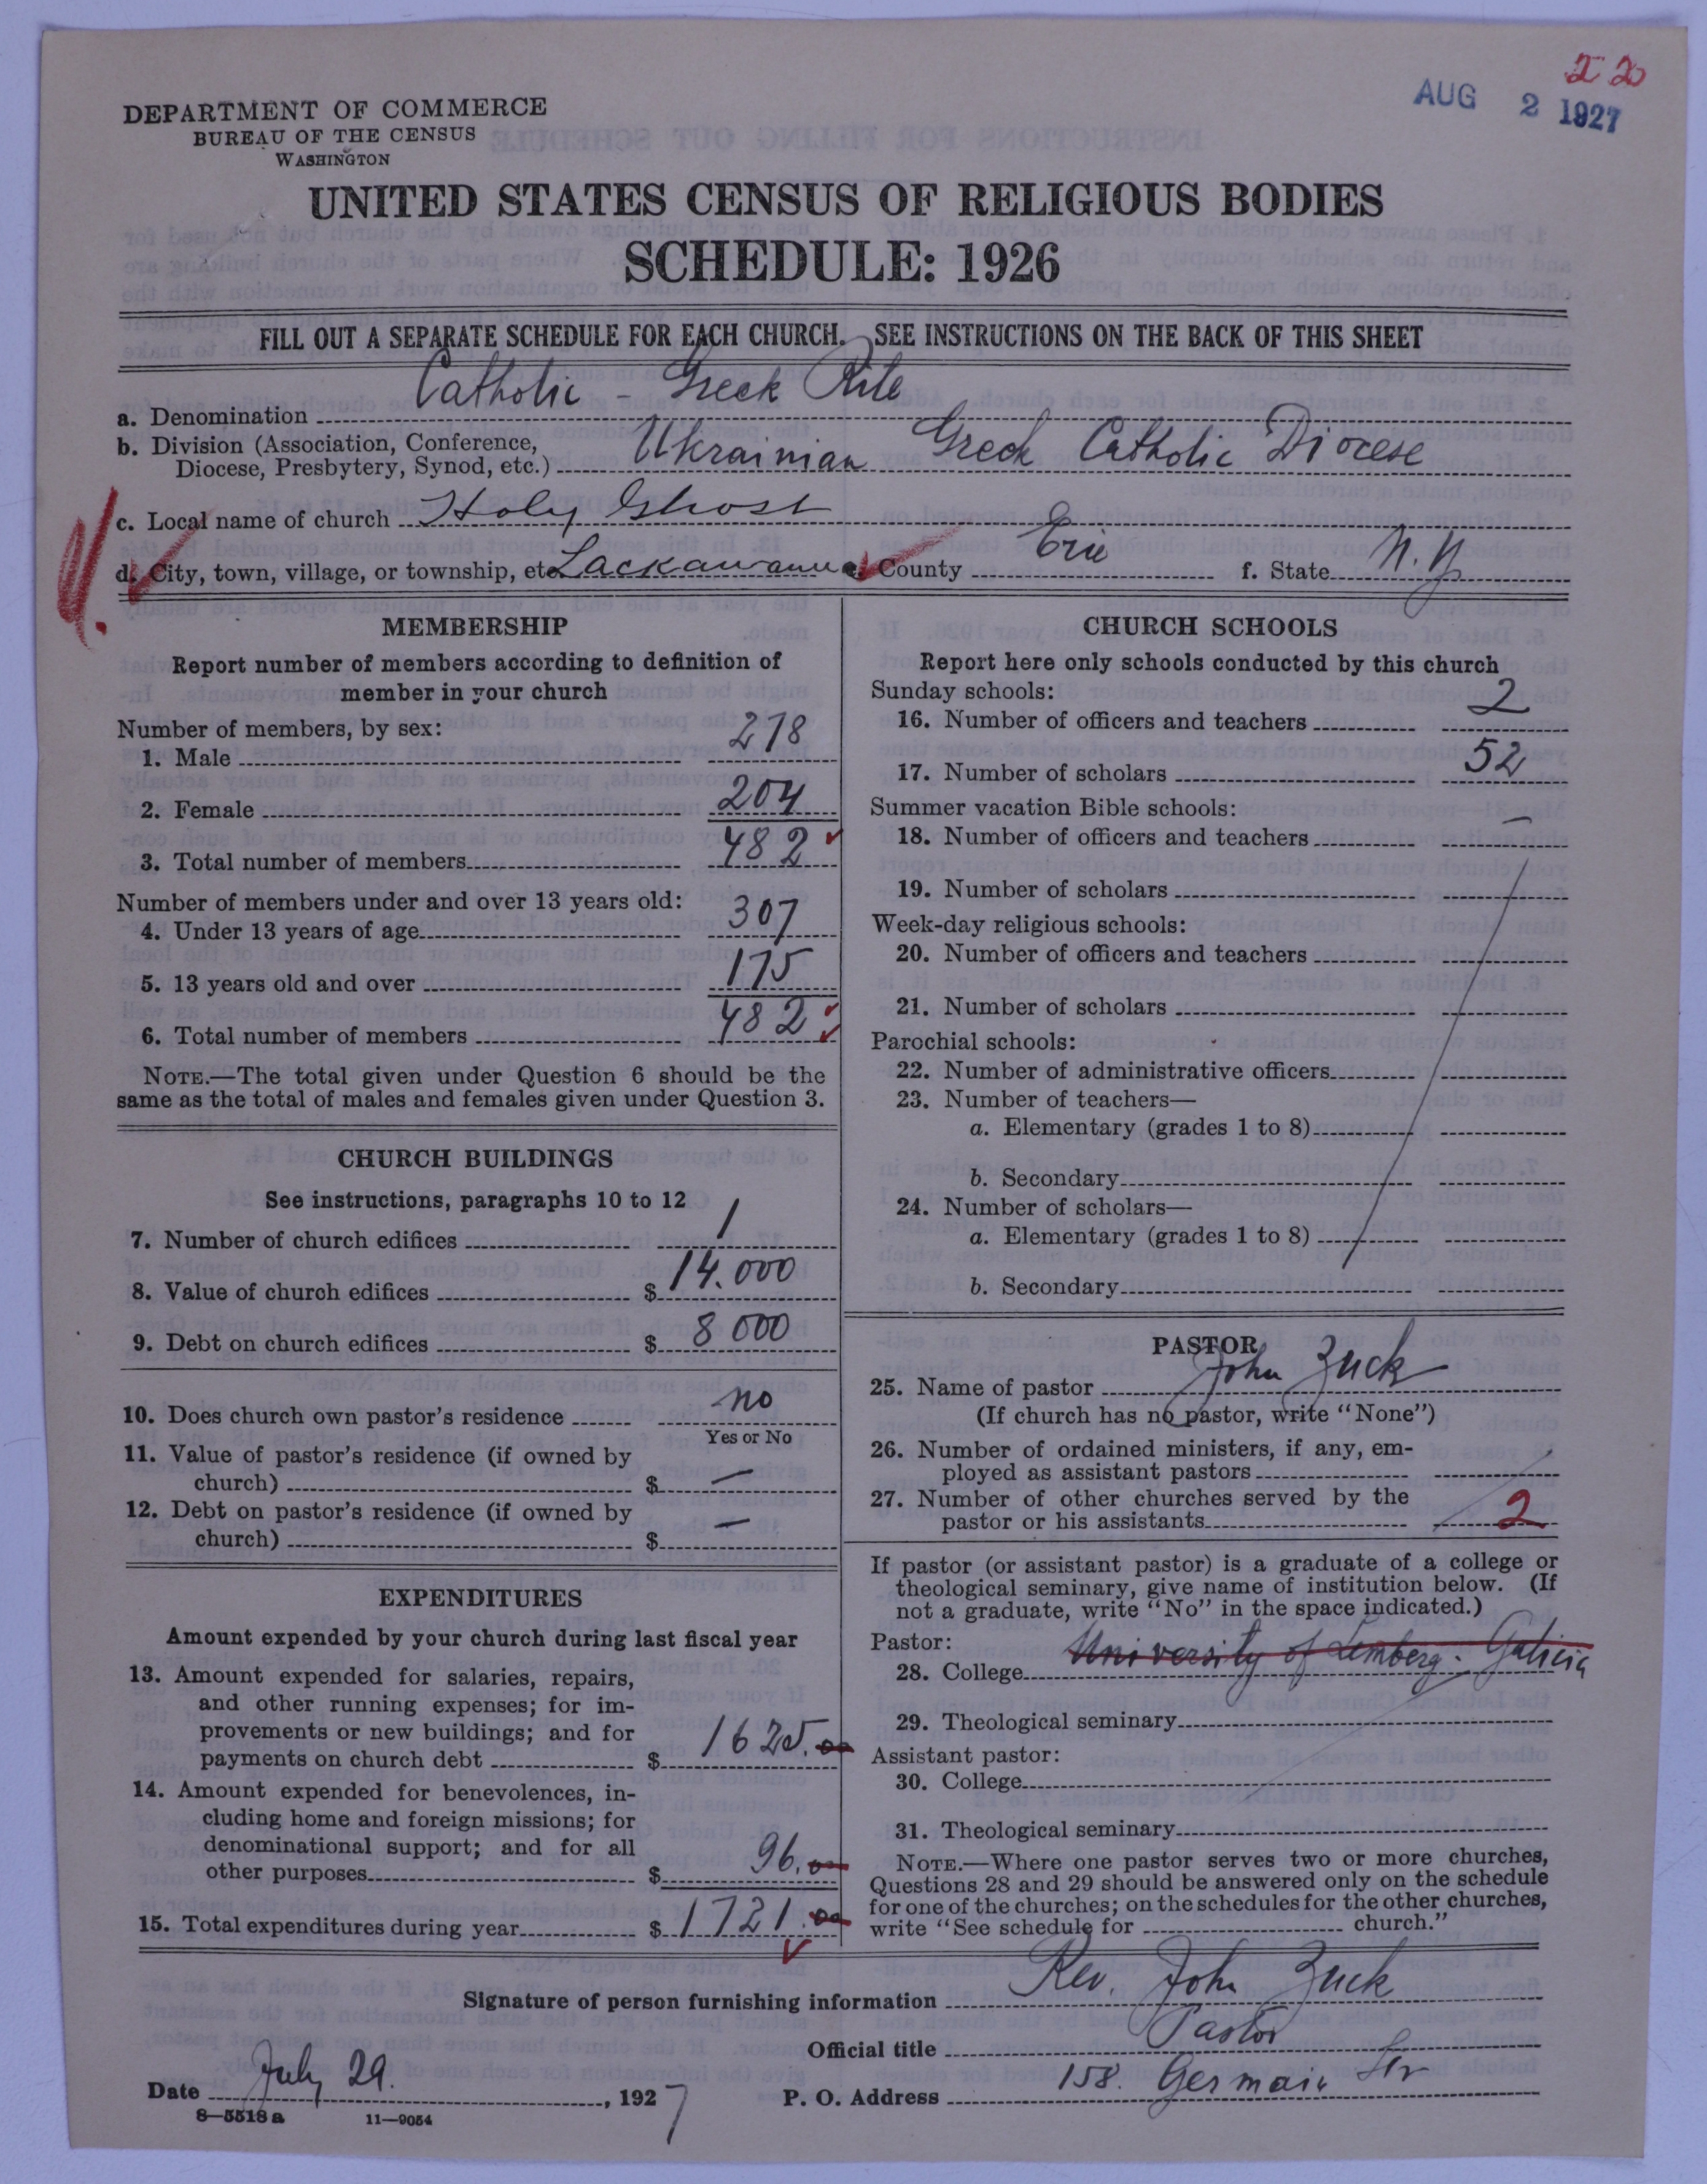 22
AUG 2 1927
DEPARTMENT OF COMMERCE
BUREAU OF THE CENSUS
WASHINGTON
UNITED STATES CENSUS OF RELIGIOUS BODIES
SCHEDULE: 1926
FILL OUT A SEPARATE SCHEDULE FOR EACH CHURCH. SEE INSTRUCTIONS ON THE BACK OF THIS SHEET
a. Denomination Catholic - Greek Rite
b. Division (Association, Conference,
Diocese, Presbytery, Synod, etc.) Ukrainian Greek Catholic Diocese
c. Local name of church Holy Ghost
d. City, town, village, or township, etc. Lackawanna e. County Erie f. State N.Y.
MEMBERSHIP
Report number of members according to definition of
member in your church
Number of members, by sex:
1. Male 278
2. Female 204
3. Total number of members 482
Number of members under and over 13 years old:
4. Under 13 years of age 307
5. 13 years old and over 175
6. Total number of members 482
NOTE.—The total given under Question 6 should be the
same as the total of males and females given under Question 3.
CHURCH BUILDINGS
See instructions, paragraphs 10 to 12
7. Number of church edifices 1
8. Value of church edifices $ 14.000
9. Debt on church edifices $ 8000
10. Does church own pastor's residence no
Yes or No
11. Value of pastor's residence (if owned by
church) $ —
12. Debt on pastor's residence (if owned by
church) $ —
EXPENDITURES
Amount expended by your church during last fiscal year
13. Amount expended for salaries, repairs,
and other running expenses; for im-
provements or new buildings; and for
payments on church debt $ 1625.00
14. Amount expended for benevolences, in-
cluding home and foreign missions; for
denominational support; and for all
other purposes $ 96.00
15. Total expenditures during year $ 1721.00
CHURCH SCHOOLS
Report here only schools conducted by this church
Sunday schools:
16. Number of officers and teachers 2
17. Number of scholars 52
Summer vacation Bible schools:
18. Number of officers and teachers —
19. Number of scholars
Week-day religious schools:
20. Number of officers and teachers
21. Number of scholars
Parochial schools:
22. Number of administrative officers
23. Number of teachers—
a. Elementary (grades 1 to 8)
b. Secondary
24. Number of scholars—
a. Elementary (grades 1 to 8)
b. Secondary
PASTOR
25. Name of pastor John Zuck
(If church has no pastor, write "None")
26. Number of ordained ministers, if any, em-
ployed as assistant pastors
27. Number of other churches served by the
pastor or his assistants 2
If pastor (or assistant pastor) is a graduate of a college or
theological seminary, give name of institution below. (If
not a graduate, write "No" in the space indicated.)
Pastor:
28. College University of Lemberg. Galicia
29. Theological seminary
Assistant pastor:
30. College
31. Theological seminary
NOTE.—Where one pastor serves two or more churches,
Questions 28 and 29 should be answered only on the schedule
for one of the churches; on the schedules for the other churches,
write "See schedule for church."
Signature of person furnishing information Rev. John Zuck
Official title Pastor
Date July 29. , 1927 P. O. Address 158. Germain Str
8—5518a 11—9054